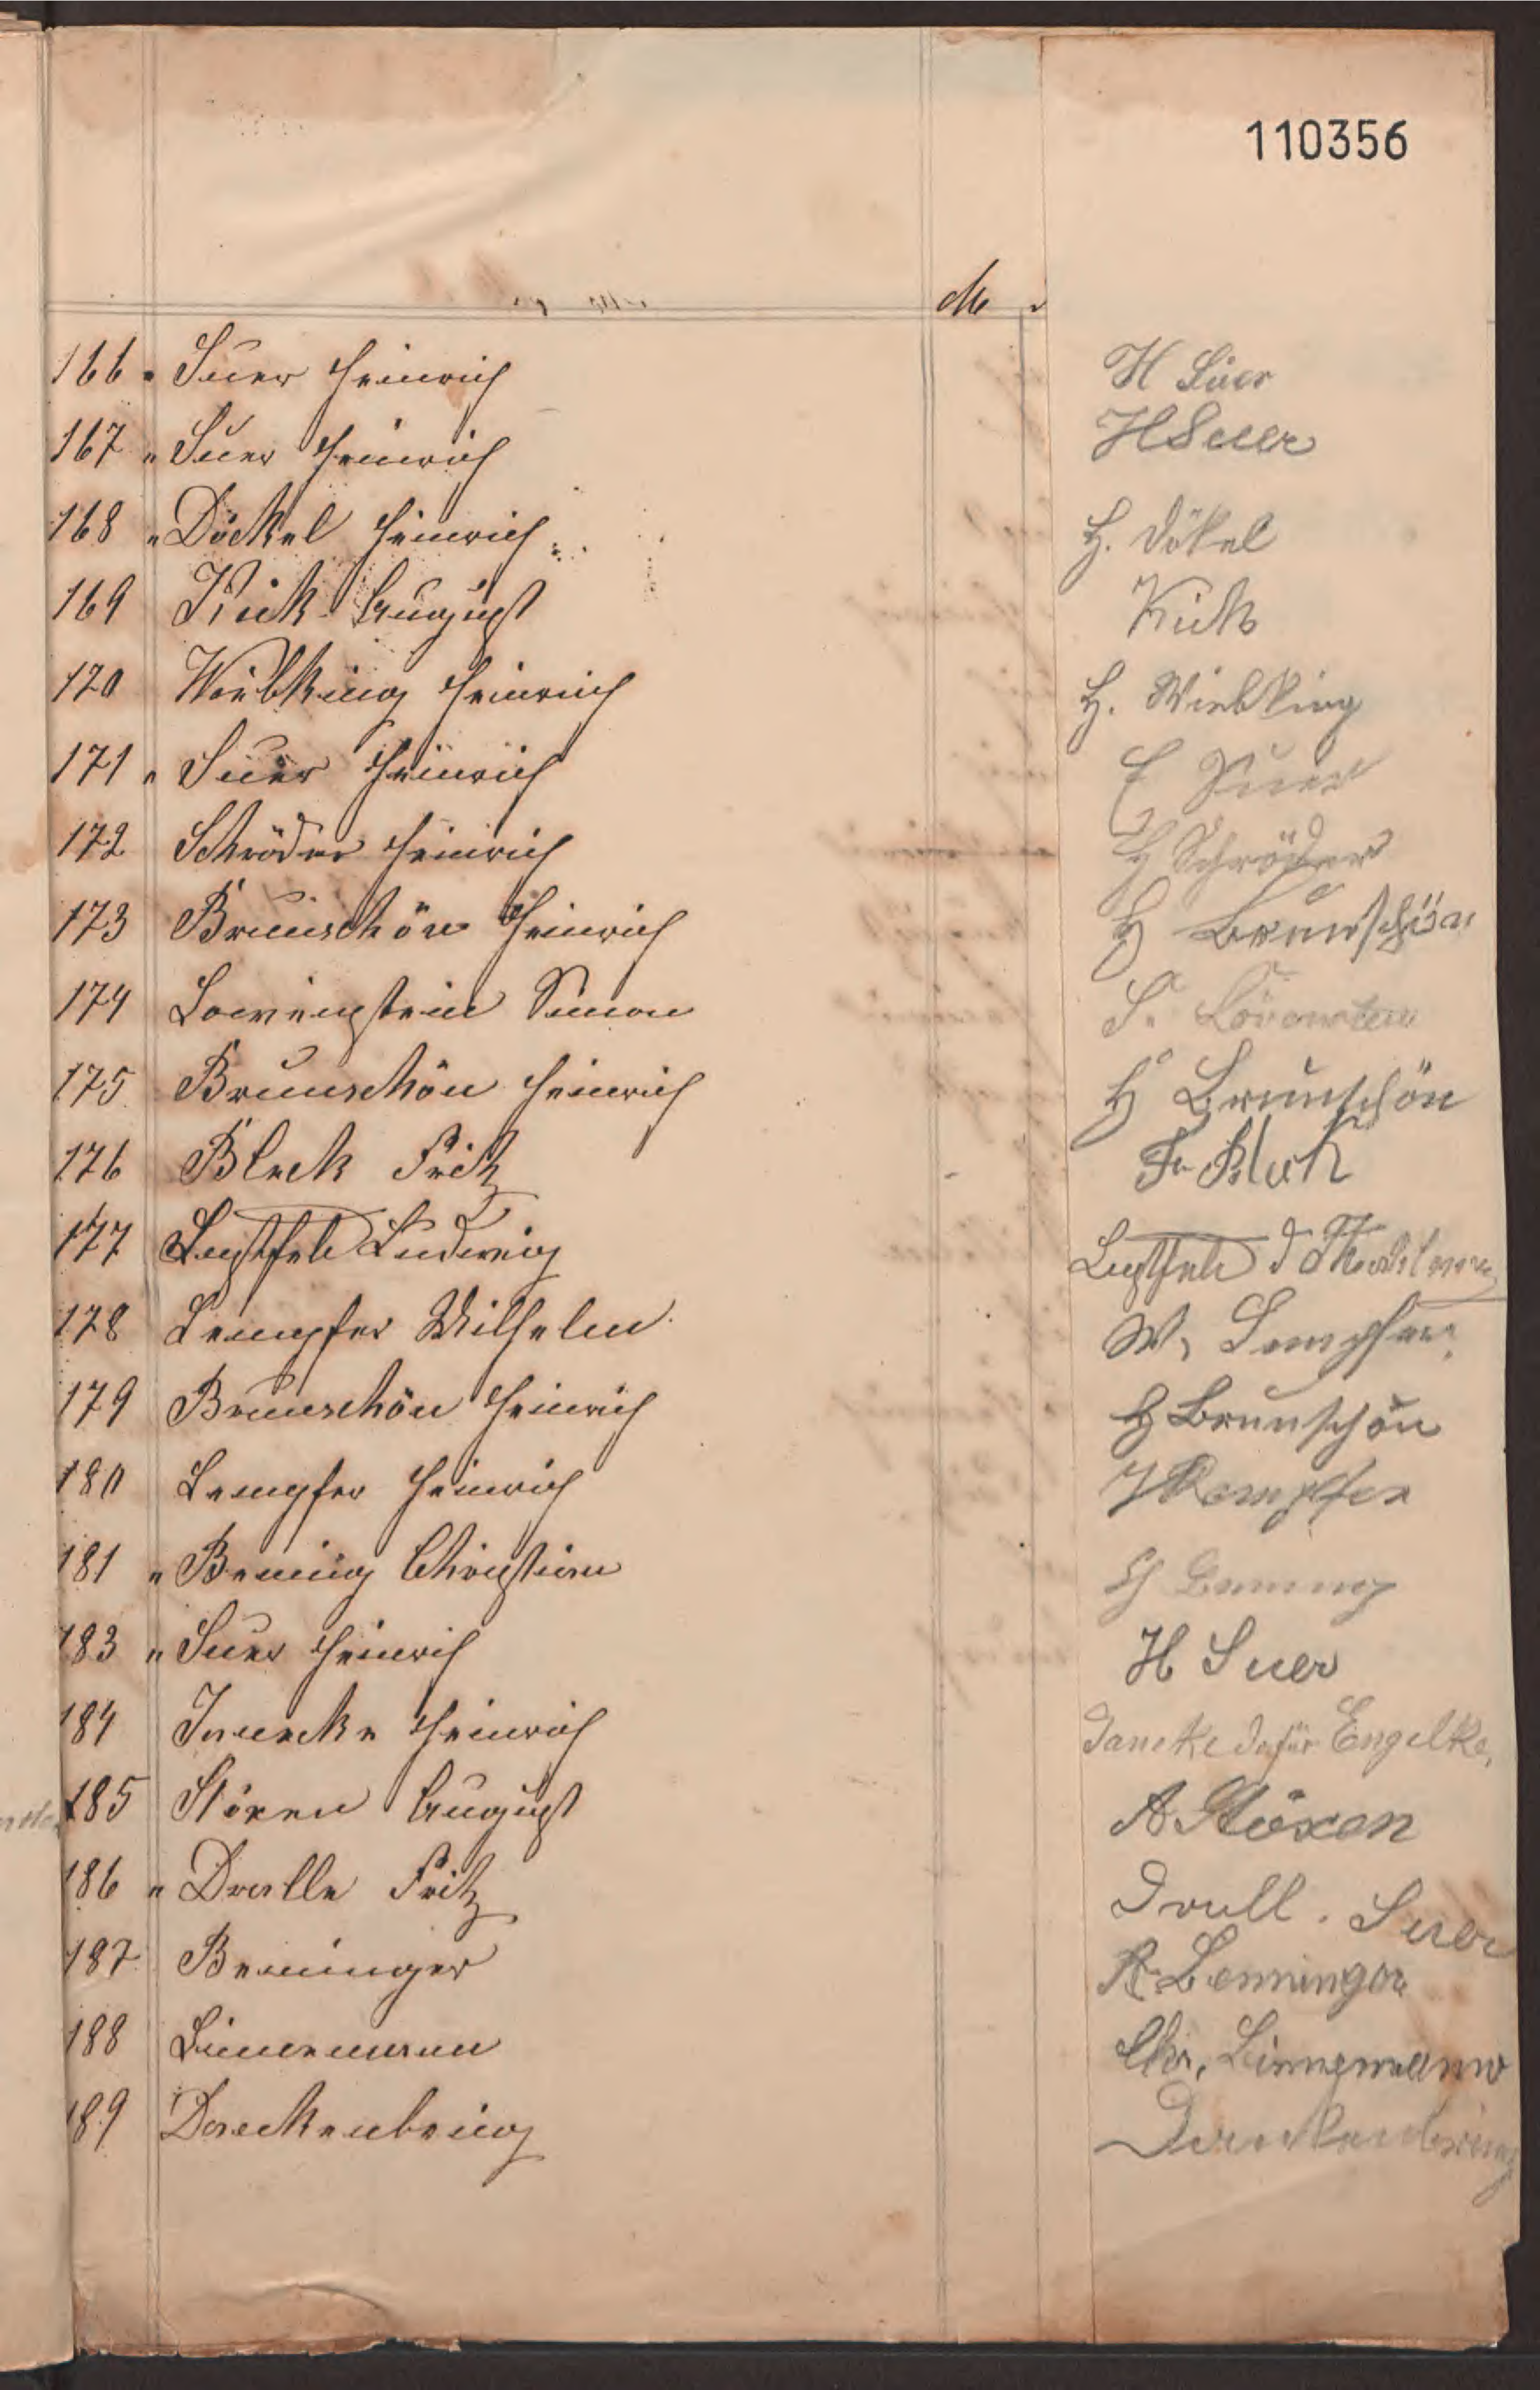 110356
M
166 " Suer Heinrich H Süer
167 " Suer Heinrich H Suer
168 " Döckel Heinrich H. Dökel
169 Kück August Kück
170 Wiebking Heinrich H. Wiebking
171 " Suer Heinrich Suer
172 Schröder Heinrich H Schröder
173 Brunschön Heinrich H Brunschön
174 Loewenstein Simon S.
175 Brunschön Heinrich H Brunschön
176 Block Fritz Fr Block
177 Lustfeld Ludwig Lustfeld
178 Lempfer Wilhelm W. Lempfer
179 Brunschön Heinrich H Brunschön
180 Lempfer Heinrich H Lempfer
181 " Benning Christian Benning
183 " Suer Heinrich H Suer
184 Heinrich dafür Engelke.
185 Stöxen August A Stöxen
186 " Fritz Suer
187 Benninger Benninger
188 Linnemann Chr. Linnemann
189